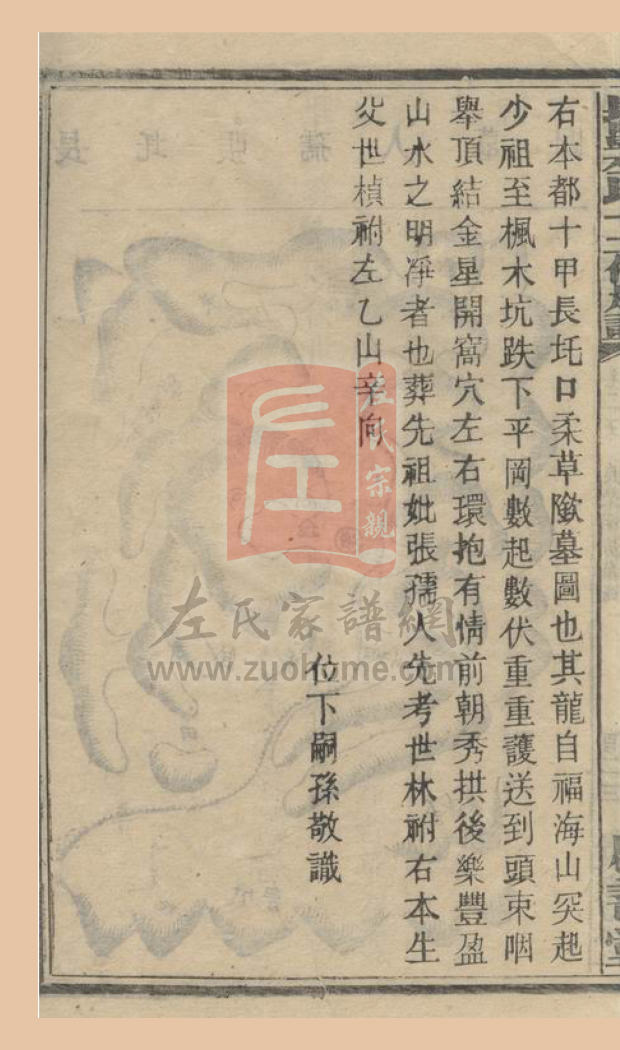 右本都十甲長圫口柔草歛墓圖也其龍自福海山突起
少祖至楓木坑跌下平岡數起數伏重重護送到頭束咽
舉頂結金星開窩穴左右環抱有情前朝秀拱後樂豐盈
山水之明淨者也葬先祖妣張孺人先考世林祔右本生
父世楨祔左乙山辛向
位下嗣孫敬識
左氏宗親
左氏家譜網